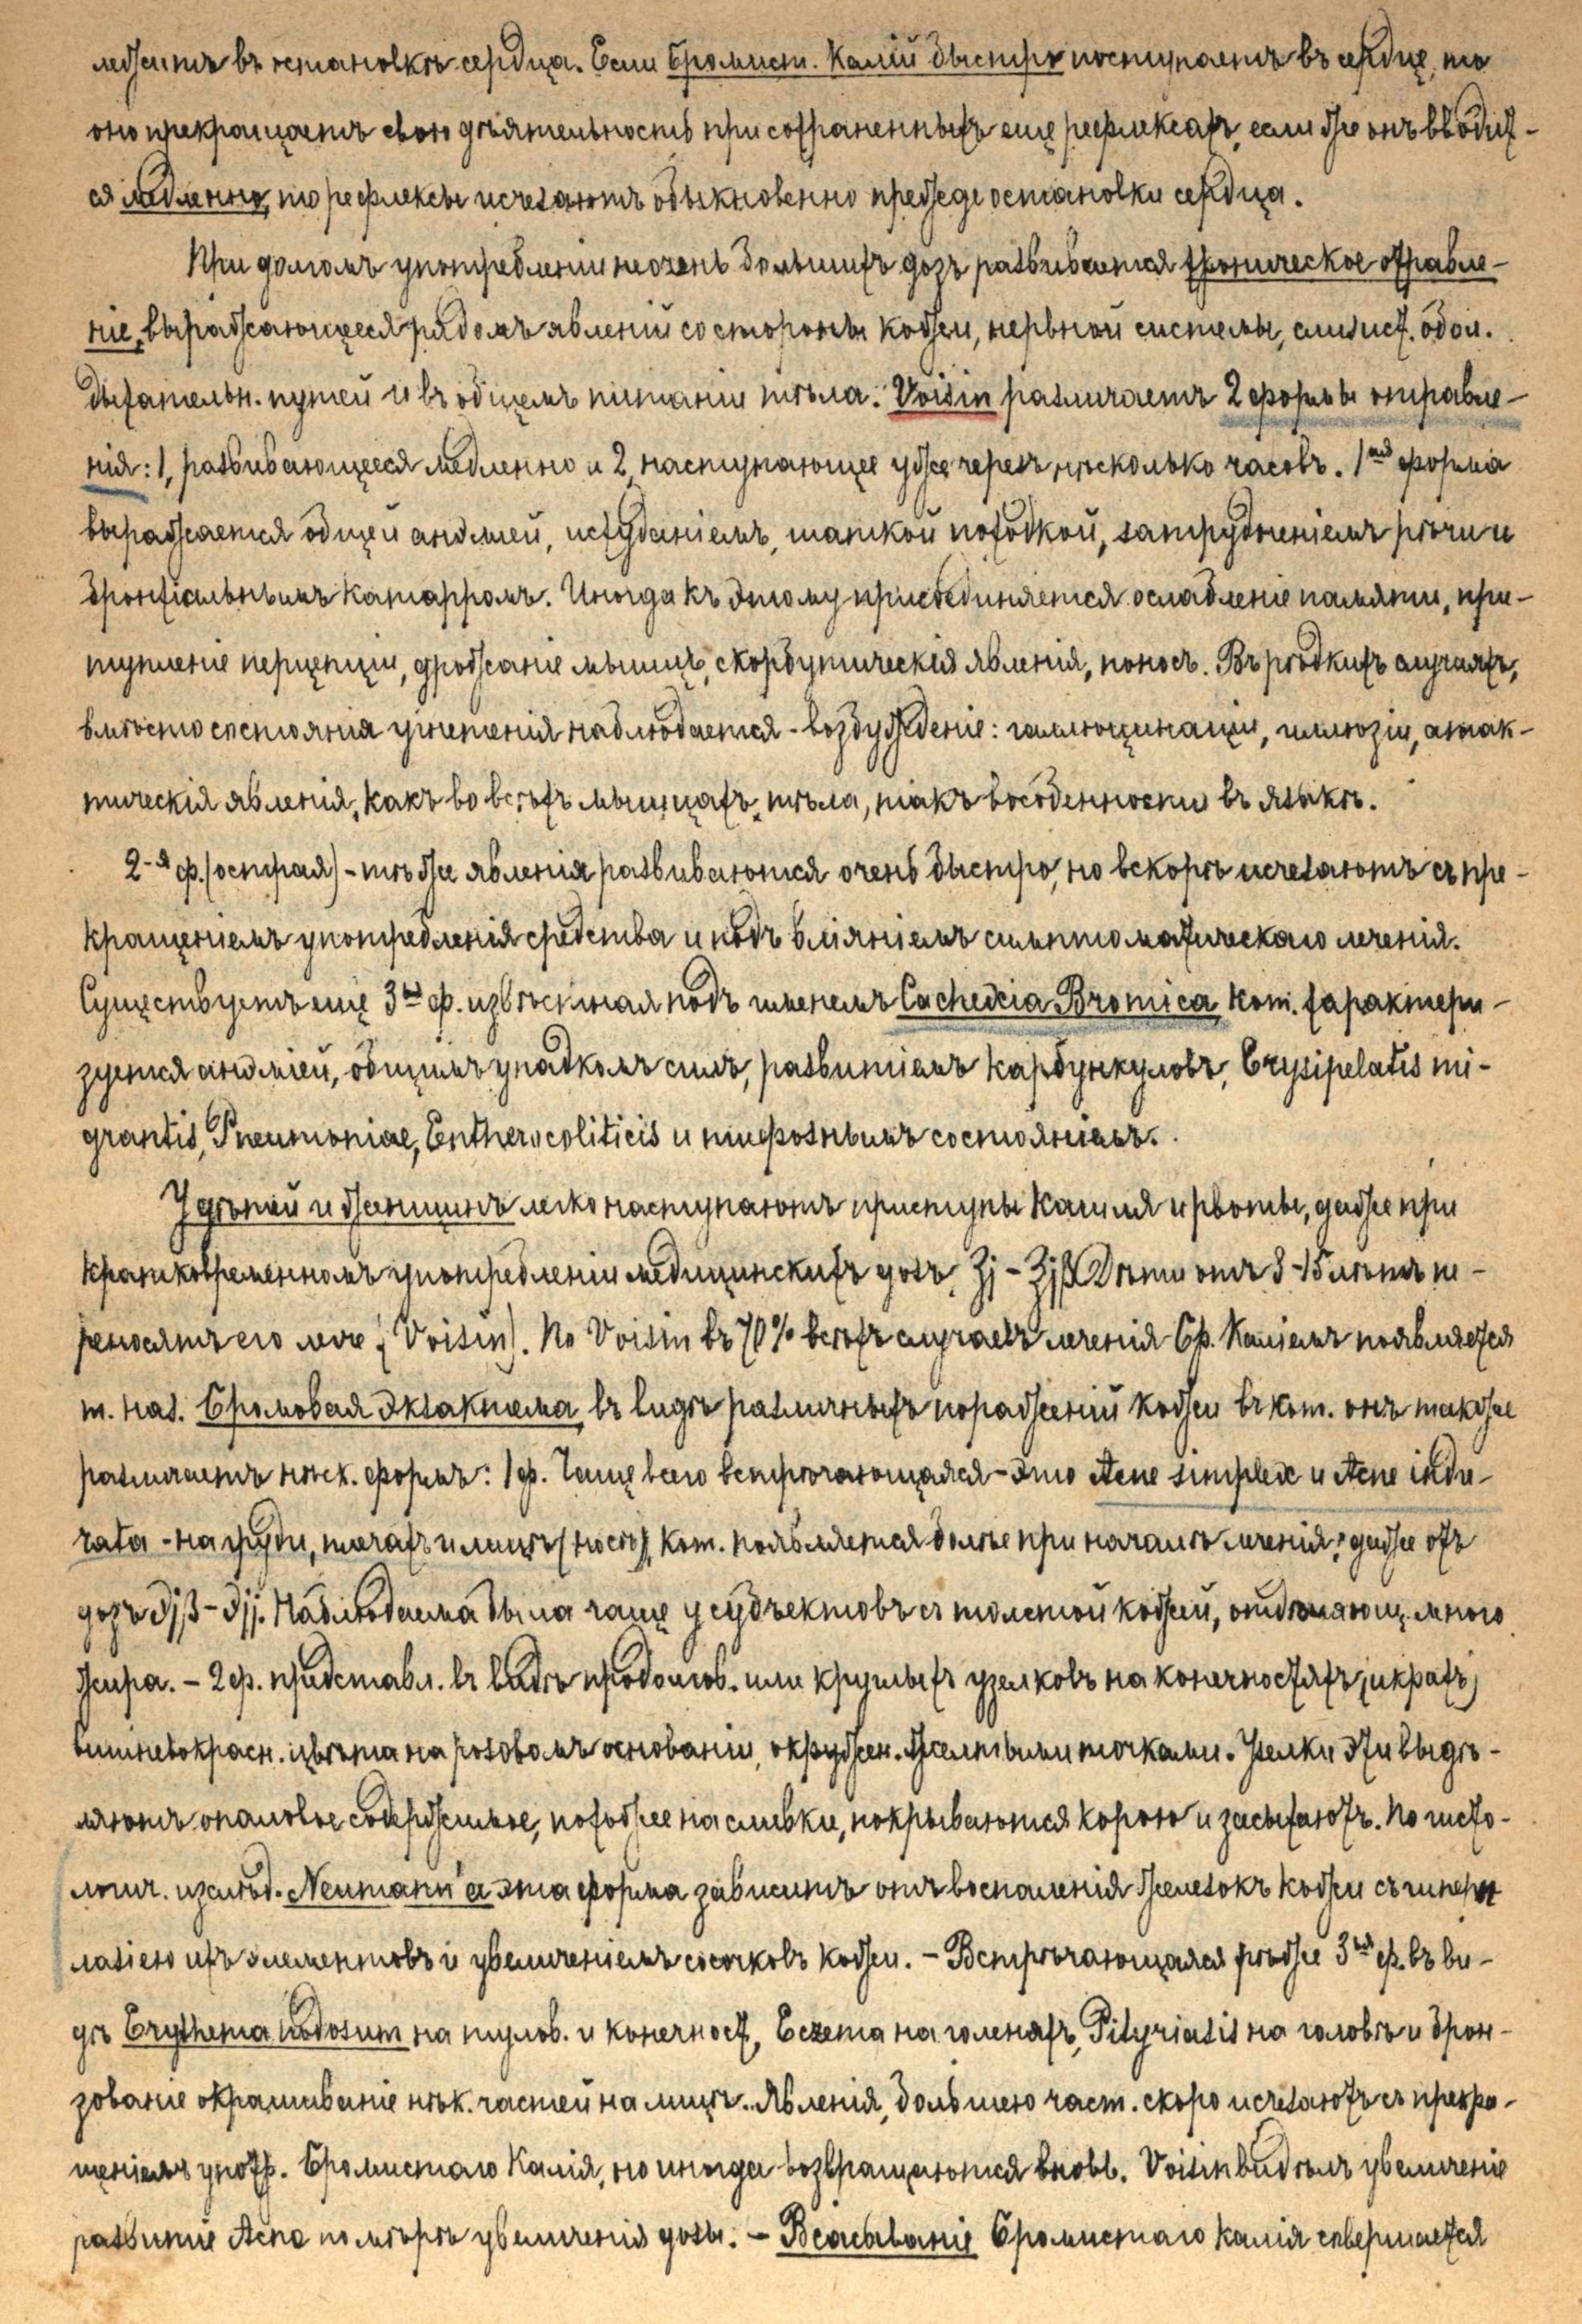 лежитъ въ остановкѣ сердца. Если Бромист. Калій быстро поступаетъ въ сердце, то
оно прекращаетъ свою дѣятельность при сохраненныхъ еще рефлексахъ, если же онъ вводит-
ся медленно, то рефлексы исчезаютъ обыкновенно прежде остановки сердца.
При долгомъ употребленіи не очень большихъ дозъ развивается хроническое отравле-
ніе, выражающееся рядомъ явленій со стороны кожи, нервной системы, слизист. обол.
дыхательн. путей и въ общемъ питаніи тѣла. Voisin различаетъ 2 формы отравле-
нія: 1, развивающееся медленно и 2, наступающее уже черезъ нѣсколько часовъ. 1ая форма
выражается общей анэміей, исхуданіемъ, шаткой походкой, затрудненіемъ рѣчи и
бронхіальнымъ катарромъ. Иногда къ этому присоединяется ослабленіе памяти, при-
тупленіе перцепціи, дрожаніе мышцъ, скорбутическія явленія, поносъ. Въ рѣдкихъ случаяхъ,
вмѣсто состоянія угнетенія наблюдается - возбужденіе: галлюцинаціи, иллюзіи, атак-
тическія явленія, какъ во всѣхъ мышцахъ тѣла, такъ въ особенности въ языкѣ.
2-я ф. (острая) - тѣ же явленія развиваются очень быстро, но вскорѣ исчезаютъ съ пре-
кращеніемъ употребленія средства и подъ вліяніемъ симптоматическаго леченія.
Существуетъ еще 3ья ф. извѣстная подъ именемъ Cachexia Bromica, кот. характери-
зуется анэміей, общимъ упадкомъ силъ, развитіемъ карбункуловъ, Erysipelatis mi-
grantis, Pneumoniae, Entherocoliticis и тифознымъ состояніемъ.
У дѣтей и женщинъ легко наступаютъ приступы кашля и рвоты, даже при
кратковременномъ употребленіи медицинскихъ дозъ ʒj - ʒjβ. Дѣти отъ 3-15 лѣтъ пе-
реносятъ его легче (Voisin). По Voisin въ 70% всѣхъ случаевъ леченія Бр. Каліемъ появляется
т. наз. Бромовая Экзантема, въ видѣ различныхъ пораженій кожи въ кот. онъ также
различаетъ нѣск. формъ: 1 ф. Чаще всего встрѣчающаяся - это Acne simplex и Acne indu-
rata - на груди, плечахъ и лицѣ (носъ), кот. появляется болѣе при началѣ леченія, даже отъ
дозъ ℈jβ - ℈jj. Наблюдаема была чаще у субъектовъ съ толстой кожей, отдѣляющ. много
жира. - 2 ф. представл. въ видѣ продолгов. или круглыхъ узелковъ на конечностяхъ (икрахъ)
вишневокрасн. цвѣта на розовомъ основаніи, окружен. желтыми точками. Узелки эти выдѣ-
ляютъ опаловое содержимое, похожее на сливки, покрываются корою и засыхаютъ. По гисто-
логич. изслѣд. Neumann'а эта форма зависитъ отъ воспаленія железокъ кожи съ гиперп
лазіею ихъ элементовъ и увеличеніемъ сосочковъ кожи. - Встрѣчающаяся рѣже 3ья ф. въ ви-
дѣ Erythema nodosum на тулов. и конечност, Eczema на голеняхъ, Pityriasis на головѣ и брон-
зованіе окрашиваніе нѣк. частей на лицѣ. Явленія, большею част. скоро исчезаютъ съ прекра-
щеніемъ употр. Бромистаго Калія, но иногда возвращаются вновь. Voisin видѣлъ увеличеніе
развитіе Acne по мѣрѣ увеличенія дозы. - Всасываніе Бромистаго Калія совершается